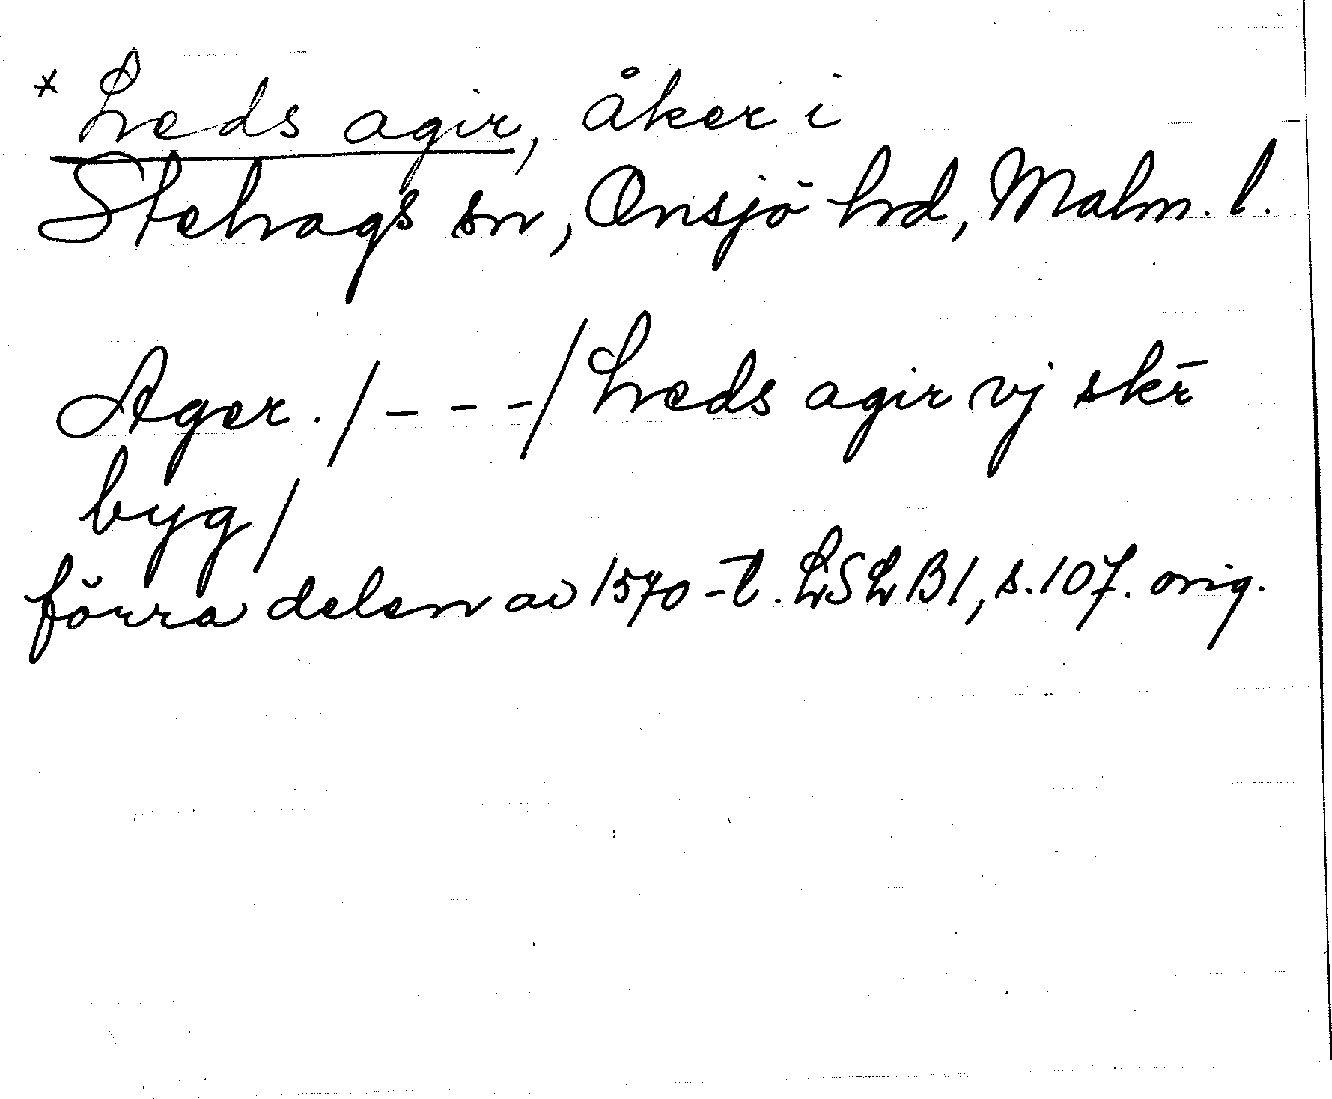 * Leds agir, åker i
Stehags sn, Onsjö hd, Malm. l.
Ager. /---/ Leds agir vj skr̄
byg/
förra delen av 1570-t. LSLB1, s. 107. orig.